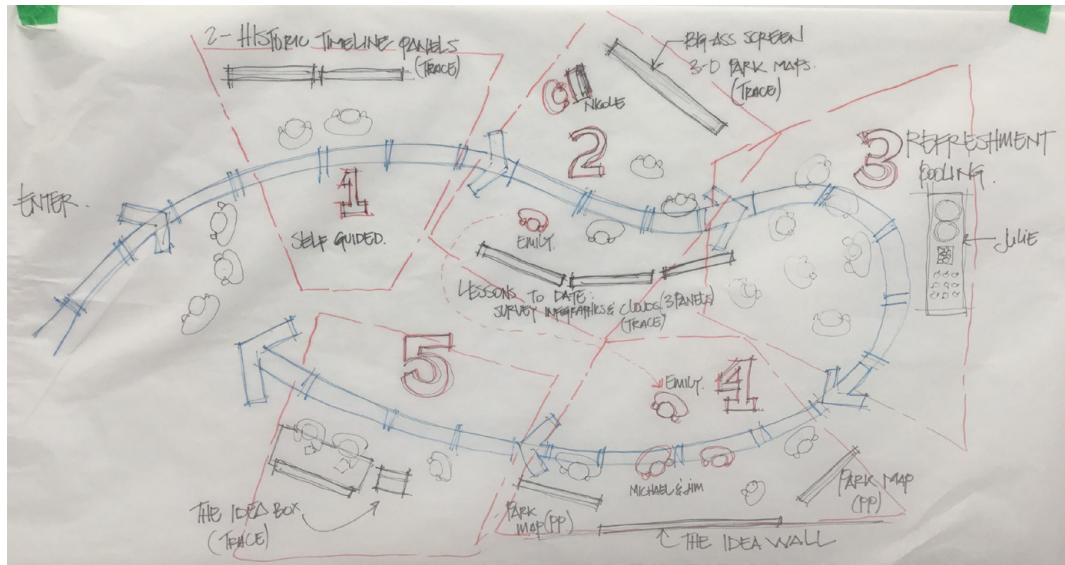 2- HISTORIC TIMELINE PANELS
(TRACE)
BIG-ASS SCREEN
3-D PARK MAPS.
(TRACE)
NICOLE
2
3 REFRESHMENT
COOLING.
JULIE
ENTER.
1
SELF GUIDED.
EMILY.
LESSONS TO DATE:
SURVEY INFOGRAPHICS & CLOUDS (3 PANELS)
(TRACE)
5
EMILY.
4
MICHAEL & JIM
PARK MAP
(PP)
PARK
MAP (PP)
THE IDEA BOX
(TRACE)
THE IDEA WALL